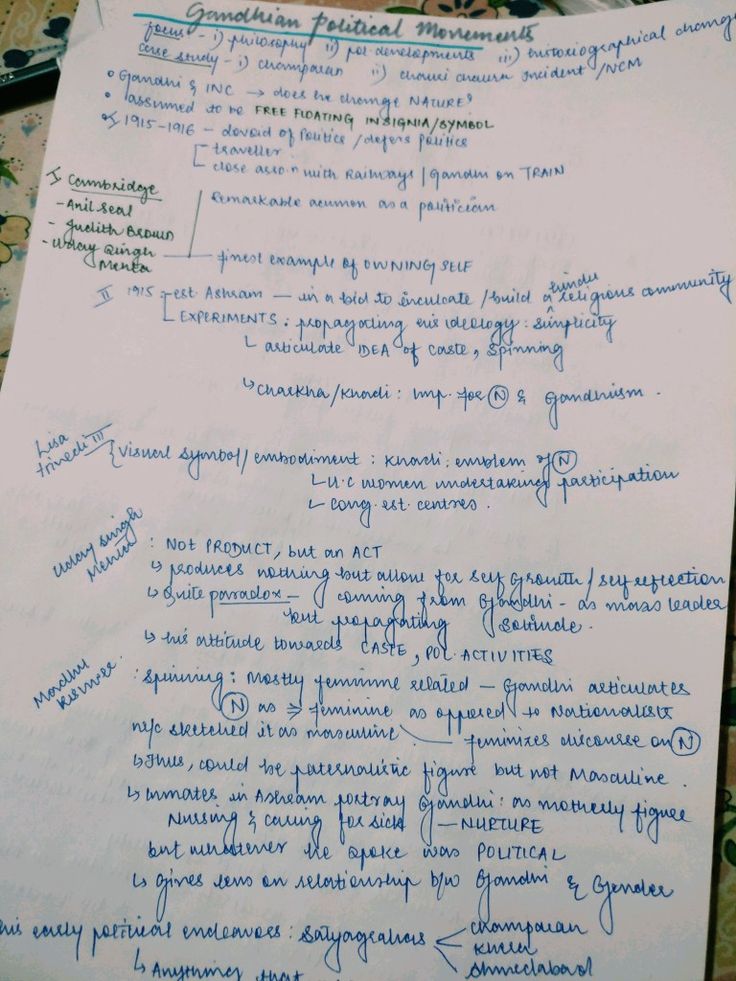 Gandhian Political Movements
focus - i) philosophy ii) pol. developments iii) historiographical change
case study - i) champaran ii) chauri chaura incident / NCM
Gandhi & INC → does he change NATURE?
assumed to be FREE FLOATING INSIGNIA/SYMBOL
I 1915-1916 - devoid of Politics / defers politics
traveller
close asso.n with Railways / Gandhi on TRAIN
I Cambridge
- Anil Seal
- Judith Brown
Remarkable acumen as a politician
- Uday Singh Mehta — finest example of OWNING SELF
II 1915 - est Ashram — in a bid to inculcate / build a hindu religious community
EXPERIMENTS : propagating his ideology : simplicity
articulate IDEA of caste, spinning
↳ charkha/khadi : imp. for Ⓝ & Gandhism.
Lisa Trivedi III
{ visual symbol / embodiment : khadi : emblem of Ⓝ
U.C women undertaking participation
cong. est. centres.
Uday Singh Mehta
: NOT PRODUCT, but an ACT
↳ produces nothing but allow for self Growth / self reflection
↳ Quite paradox - coming from Gandhi - as mass leader
but propagating solitude.
↳ his attitude towards CASTE, POL. ACTIVITIES
Madhu Kishwar
: spinning : Mostly feminine related — Gandhi articulates
Ⓝ as feminine as opposed to Nationalists
w/c sketched it as masculine — feminizes discourse on Ⓝ
↳ Thus, could be paternalistic figure but not Masculine.
↳ Inmates in Ashram portray Gandhi : as motherly figure
Nursing & caring for sick — NURTURE
but whatever he spoke was POLITICAL
↳ gives lens on relationship b/w Gandhi & Gender
his early political endeavors : satyagrahas
champaran
kheda
Ahmedabad
↳ Anything that